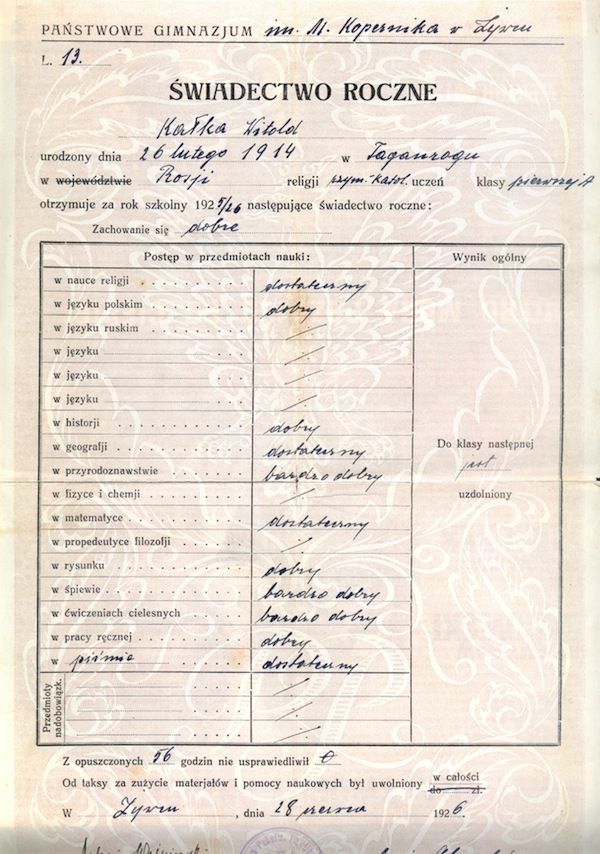 PAŃSTWOWE GIMNAZJUM im. M. Kopernika w Żywcu
L. 13.
ŚWIADECTWO ROCZNE
Kałka Witold
urodzony dnia 26 lutego 1914 w Taganrogu
w województwie Rosji religji rzym.-katol. uczeń klasy pierwszej A
otrzymuje za rok szkolny 1925/26 następujące świadectwo roczne:
Zachowanie się dobre
Postęp w przedmiotach nauki: Wynik ogólny
w nauce religji dostateczny
w języku polskim dobry
w języku ruskim
w języku
w języku
w języku
w historji dobry
w geografji dostateczny
w przyrodoznawstwie bardzo dobry
w fizyce i chemji
w matematyce dostateczny
w propedeutyce filozofji
w rysunku dobry
w śpiewie bardzo dobry
w ćwiczeniach cielesnych bardzo dobry
w pracy ręcznej dobry
w piśmie dostateczny
Do klasy następnej
jest
uzdolniony
Przedmioty
nadobowiązk.
Z opuszczonych 56 godzin nie usprawiedliwił 0
Od taksy za zużycie materjałów i pomocy naukowych był uwolniony w całości
do zł.
W Żywcu, dnia 28 czerwca 1926.